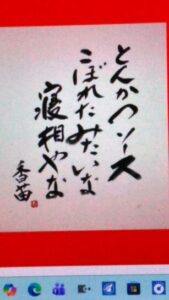 とんかつソース
こぼれたみたいな
寝相やな
香苗